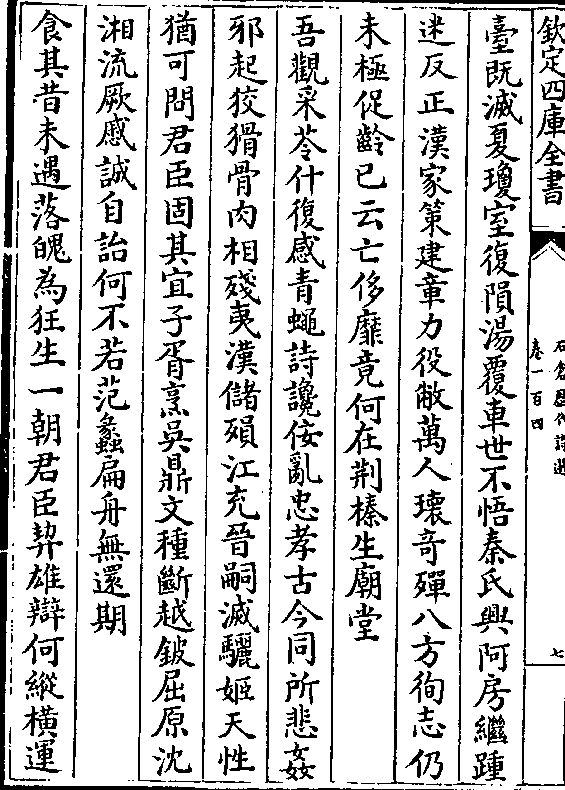 欽定四庫全書
石倉歷代詩選
卷一百四
七
臺既滅夏瓊室復隕湯覆車世不悟秦氏興阿房繼踵
迷反正漢家策建章力役敝萬人瓌奇殫八方徇志仍
未極促齡已云亡侈靡竟何在荆榛生廟堂
吾觀采苓什復感青蠅詩讒佞亂忠孝古今同所悲姦
邪起狡猾骨肉相殘夷漢儲殞江充晉嗣滅驪姬天性
猶可間君臣固其宜子胥烹吳鼎文種斷越鈹屈原沈
湘流厥慼誠自詒何不若范蠡扁舟無還期
食其昔未遇落魄為狂生一朝君臣契雄辯何縱橫運